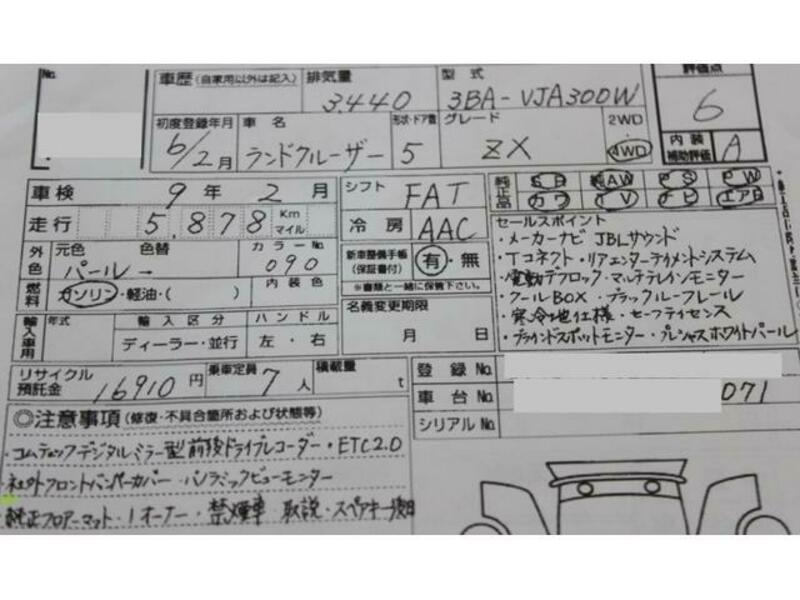 No.
車歴 (自家用以外は記入) 排気量 3.440 型式 3BA-VJA300W 評価点 6
初度登録年月 6/2月 車名 ランドクルーザー 形状・ドア数 5 グレード ZX 2WD 4WD 内装補助評価 A
車検 9年 2月 シフト FAT 純正品 SR 純AW PS PW
カワ TV ナビ エアB
走行 5,878 Km マイル 冷房 AAC
外色 元色 パール 色替 → カラーNo. 090 内装色
新車整備手帳(保証書付) 有・無
※書類と一緒に保管下さい。
燃料 ガソリン・軽油・( )
名義変更期限 月 日
輸入車用 年式 輸入区分 ディーラー・並行 ハンドル 左・右
セールスポイント
・メーカーナビ JBLサウンド
・Tコネクト・リアエンターテイメントシステム
・電動デフロック・マルチテレインモニター
・クールBOX・ブラックルーフレール
・寒冷地仕様・セーフティセンス
・ブラインドスポットモニター・プレシャスホワイトパール
リサイクル預託金 16910円 乗車定員 7人 積載量 t
登録No.
車台No. 071
シリアルNo.
◎注意事項 (修復・不具合箇所および状態等)
・コムテックデジタルミラー型前後ドライブレコーダー・ETC2.0
・社外フロントバンパーカバー・パノラミックビューモニター
・純正フロアーマット・1オーナー・禁煙車 取説・スペアキー後日